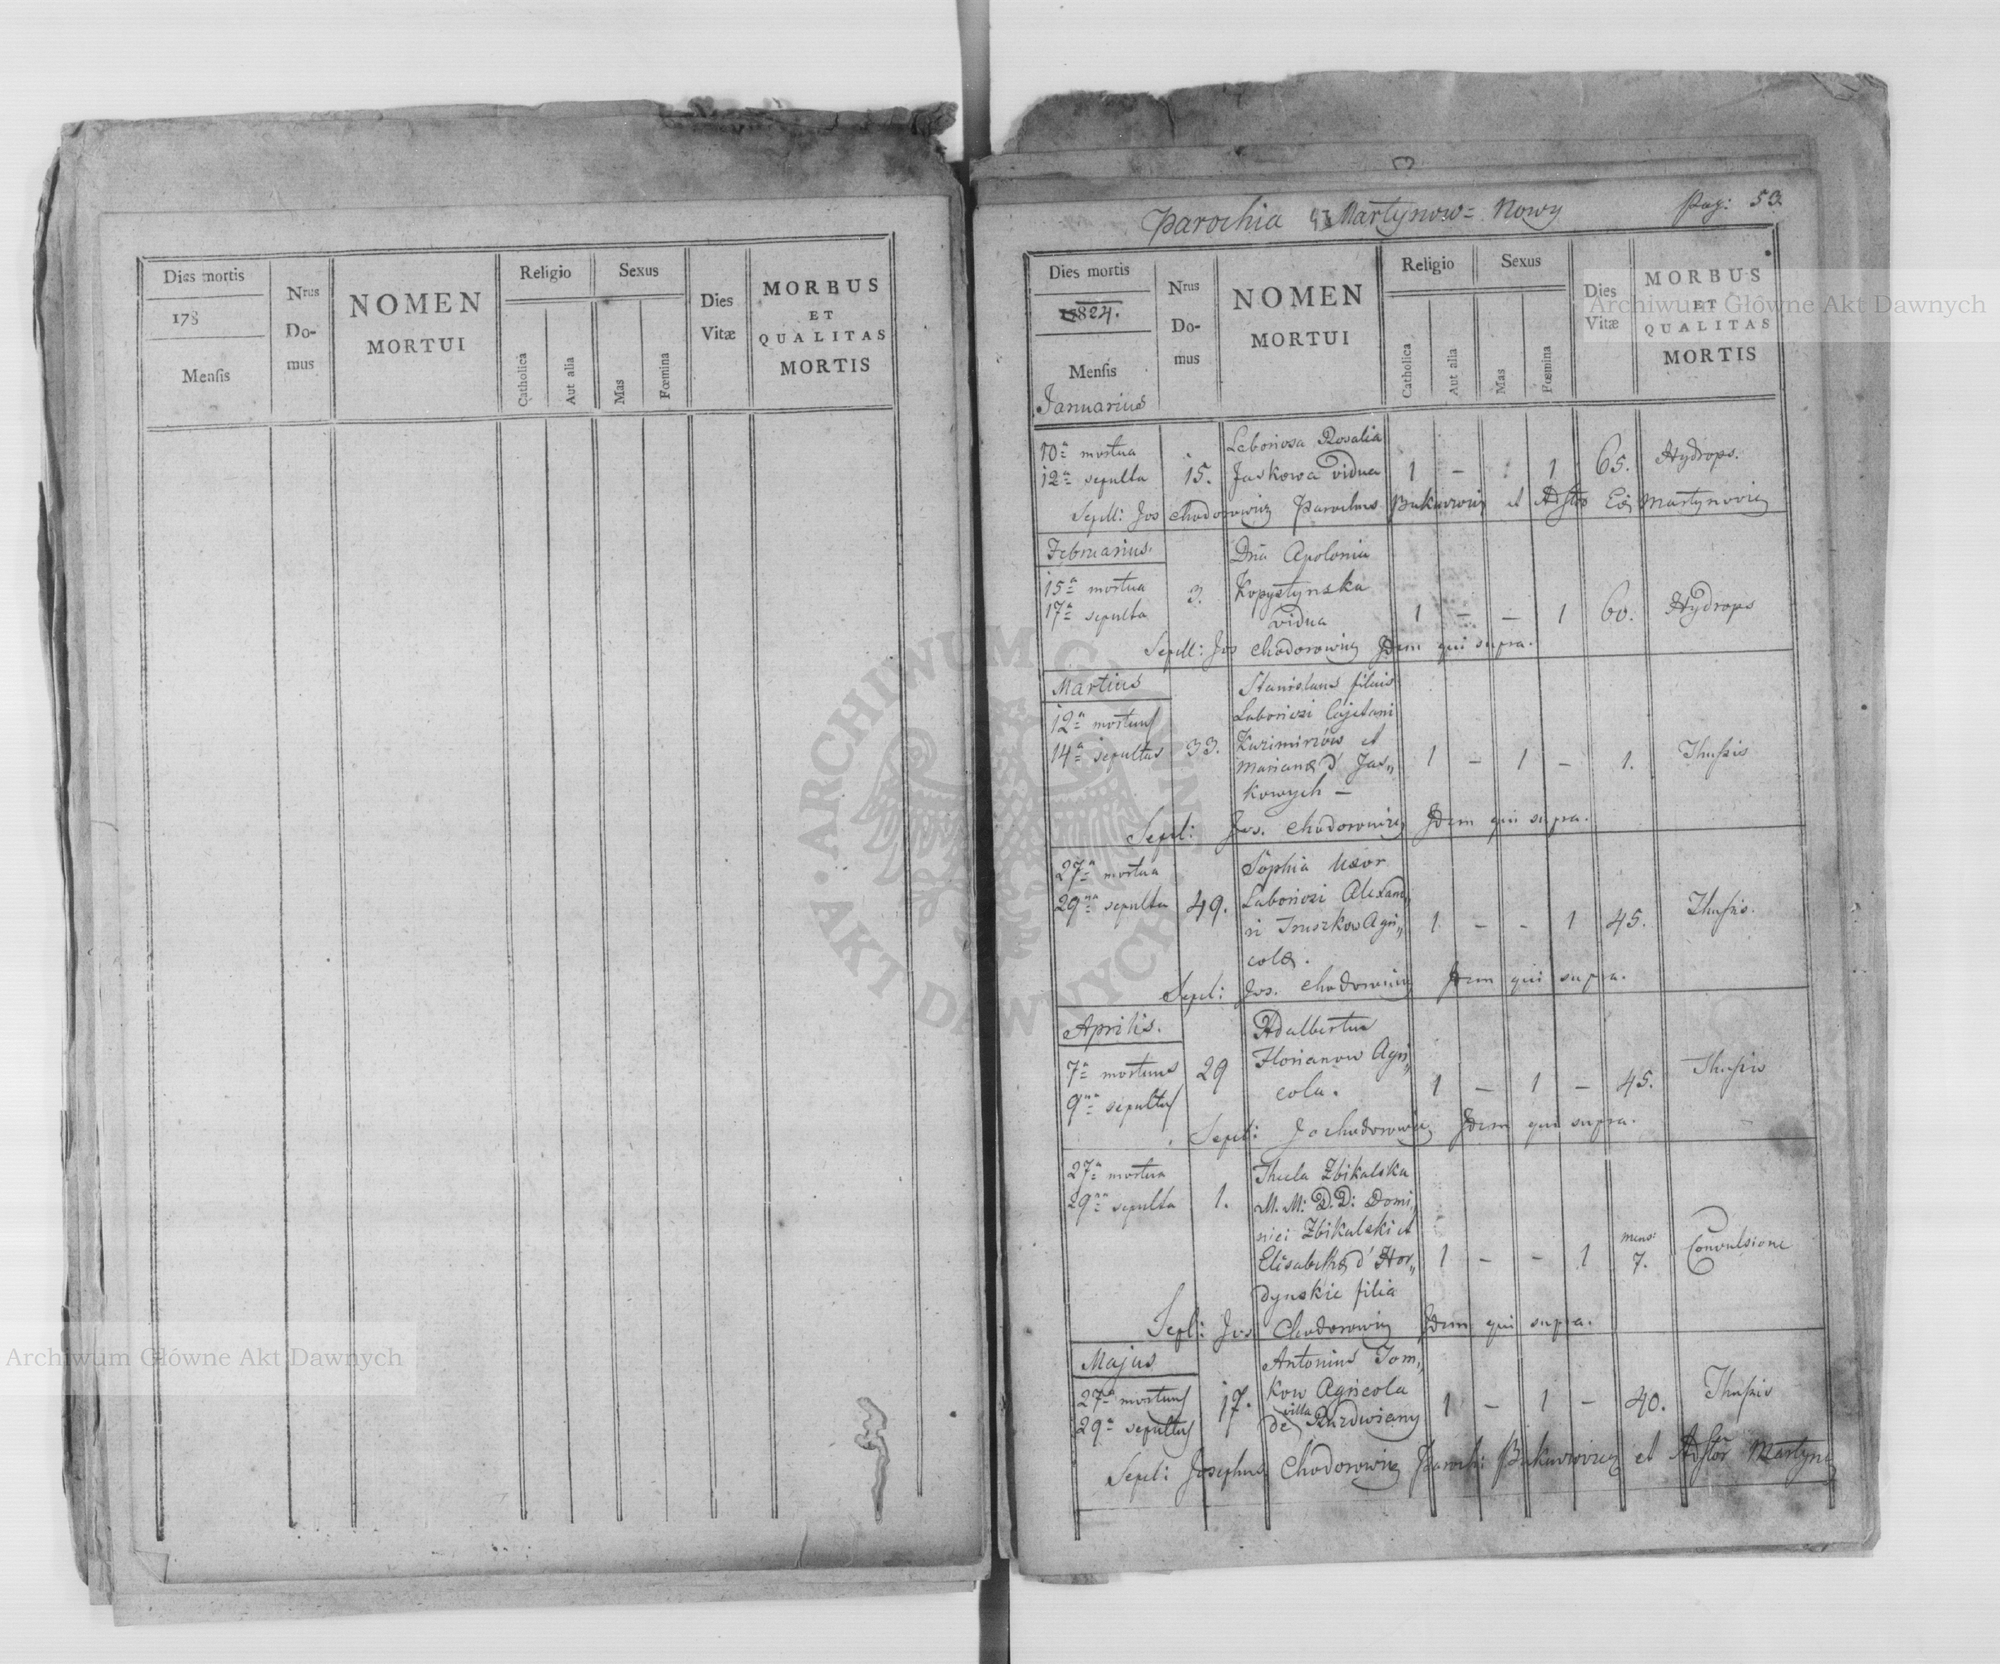 Dies mortis
178
Mensis
Nrus
Do-
mus
NOMEN
MORTUI
Religio
Catholica
Aut alia
Sexus
Mas
Fœmina
Dies
Vitæ
MORBUS
ET
QUALITAS
MORTIS
Parochia Martynow = Nowy
Pag: 53
Dies mortis
1824.
Mensis
Januarius
Nrus
Do-
mus
NOMEN
MORTUI
Religio
Catholica
Aut alia
Sexus
Mas
Fœmina
Dies
Vitæ
MORBUS
ET
QUALITAS
MORTIS
10a mortua
12a sepulta
15.
Rosalia
Jaskowa vidua
1 - : 1 65. Hydrops.
Sepll: Jos Chodorowicz Parochus
Februarius.
15a mortua
17a sepulta
3.
Dna Apolonia
Kopystynska
vidua
1 - - 1 60. Hydrops
Sepll: Jos Chodorowicz Idem qui supra.
Martius
12a mortuus
14a sepultus
33.
Stanislaus filius
Laboriosi Cajetani
Kazimirzów et
Marianæ d' Jas„
kowych —
1 - 1 - 1. Thusis
Sepel: Jos. Chodorowicz Idem qui supra.
27a mortua
29na sepulta
49.
Sophia Uxor
Laboriosi Alexand„
ri Truszkow Agri„
colæ.
1 - - 1 45. Thusis.
Sepel: Jos. Chodorowicz Idem qui supra.
Aprilis.
7a mortuus
9na sepultus
29
Adalbertus
Florianow Agri„
cola.
1 - 1 - 45. Thusis
Sepel: Jo Chodorowicz Idem qui supra.
27a mortua
29na sepulta
1.
Thecla Zbikalska
M. M: D. D: Domi„
nici Zbikalski et
Elisabethæ d' Hor„
dynskie filia
1 - - 1
mens:
7.
Convulsione
Sepl: Jos Chodorowicz Idem qui supra.
Majus
27a mortuus
29a sepultus
17.
Antonius Tom„
kow Agricola
villa
de Burdwieny
1 - 1 - 40. Thusis
Sepel: Josephus Chodorowicz Paroch:
ARCHIWUM GŁÓWNE AKT DAWNYCH
Archiwum Główne Akt Dawnych
Archiwum Główne Akt Dawnych